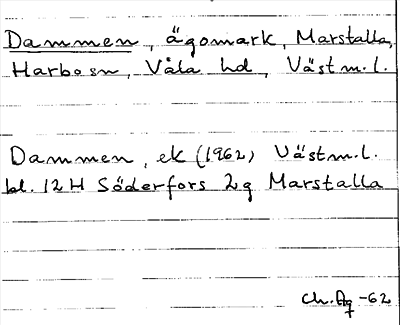 Dammen, ägomark, Marstalla,
Harbo sn, Våla hd, Västm.l.
Dammen, ek (1962) Västm.l.
bl. 12 H Söderfors 2g Marstalla
-62